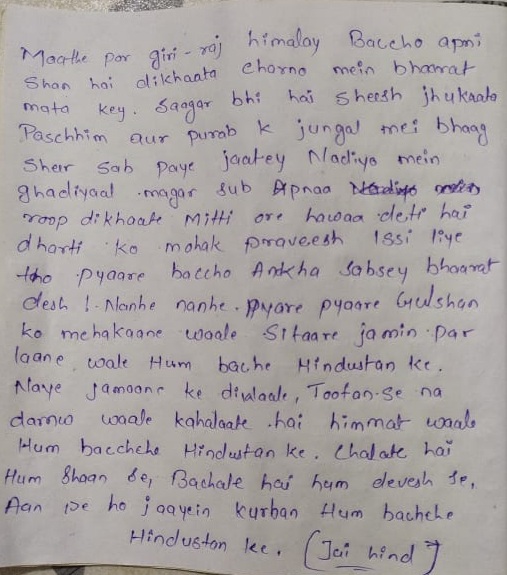 Maathe par giri-raj himalay Baccho apni
Shan hai dikhaata charno mein bhaarat
mata key. Saagar bhi hai Sheesh jhukaata
Paschhim aur purab k jungal mei bhaag
Sher Sab paye jaatey Nadiyo mein
ghadiyaal magar sub Apnaa
roop dikhaate Mitti ore hawaa deti hai
dharti ko mohak praveesh Issi liye
tho pyaare baccho Ankha Sabsey bhaarat
desh ! Nanhe nanhe. pyare pyaare Gulshan
ko mehakaane waale Sitaare jamin par
laane wale Hum bache Hindustan ke.
Naye jamaane ke divalaale, Toofan-se na
darnes waale kahalaate hai himmat waale
Hum bacchche Hindustan ke. Chalate hai
Hum Shaan se, Bachate hai hum devesh se,
Aan pe ho jaayein kurban Hum bachche
Hindustan ke. (Jai hind)